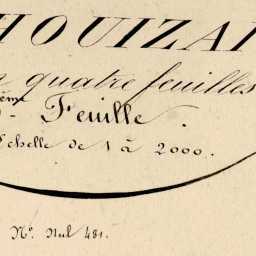 HOUIZA
quatre feuilles
ème Feuille.
Echelle de 1 à 2000.
Nº. Nul 481.